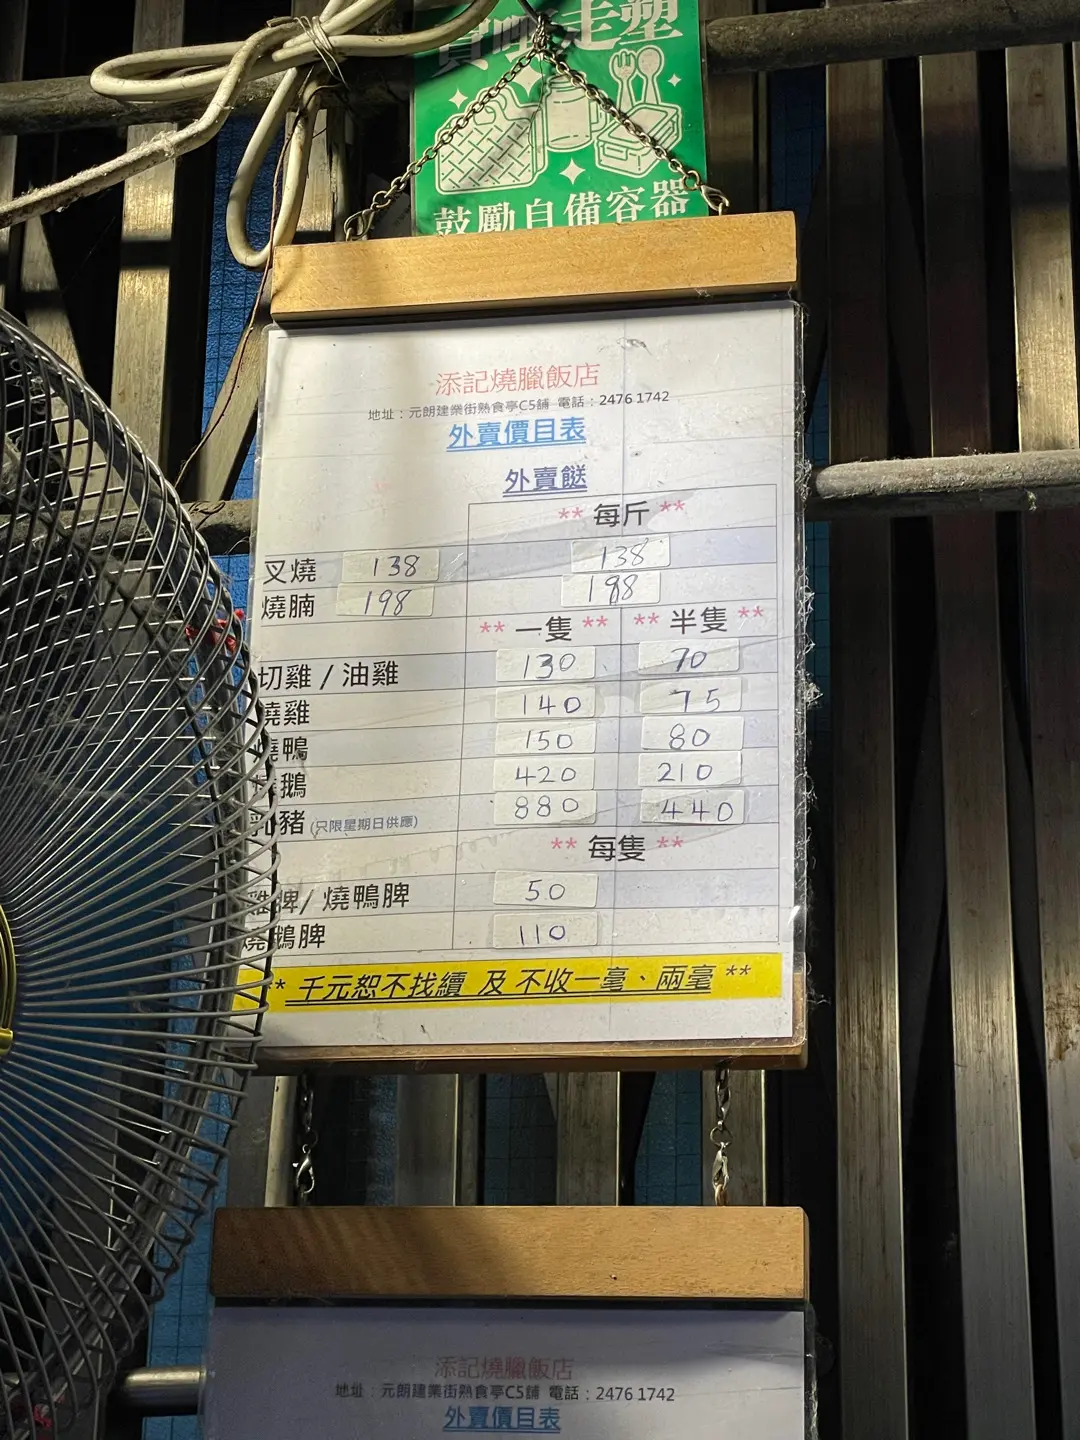 走塑
鼓勵自備容器
添記燒臘飯店
地址：元朗建業街熟食亭C5舖 電話：2476 1742
外賣價目表
外賣餸
** 每斤 **
叉燒 138 138
燒腩 198 198
** 一隻 ** ** 半隻 **
切雞 / 油雞 130 70
燒雞 140 75
燒鴨 150 80
燒鵝 420 210
乳豬 (只限星期日供應) 880 440
** 每隻 **
雞脾/ 燒鴨脾 50
燒鵝脾 110
** 千元恕不找續 及 不收一毫、兩毫 **
添記燒臘飯店
地址：元朗建業街熟食亭C5舖 電話：2476 1742
外賣價目表